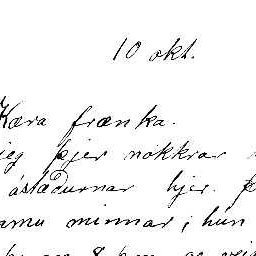 10 okt.
Kæra frænka.
jeg þjer nokkrar
ástæðurnar hjer.
minnar, hún